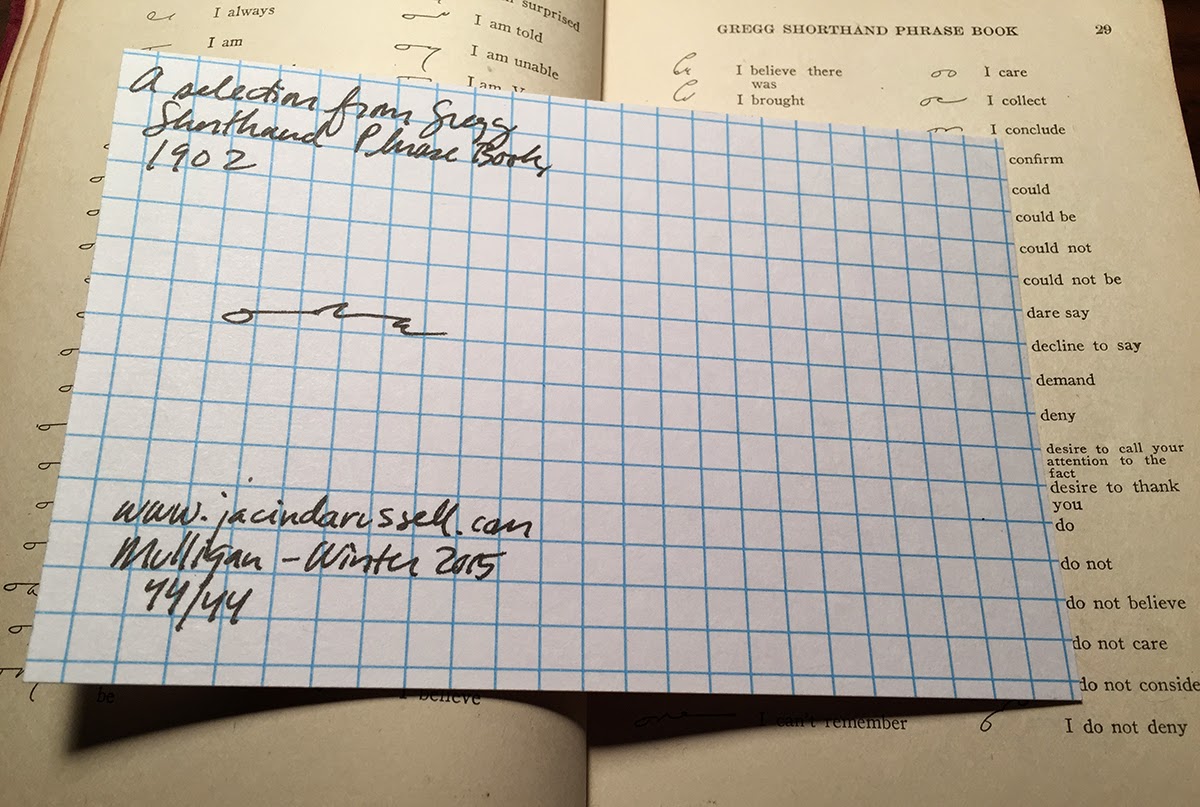 I always
I am
surprised
I am told
I am unable
I am
GREGG SHORTHAND PHRASE BOOK 29
I believe there
was
I brought
I care
I collect
I conclude
confirm
could
could be
could not
could not be
dare say
decline to say
demand
deny
desire to call your
attention to the
fact
desire to thank
you
do
do not
do not believe
do not care
do not conside
I do not deny
be
I believe
I can't remember
A selection from Gregg
Shorthand Phrase Book,
1902
www.jacindarussell.com
Mulligan – Winter 2015
44/44